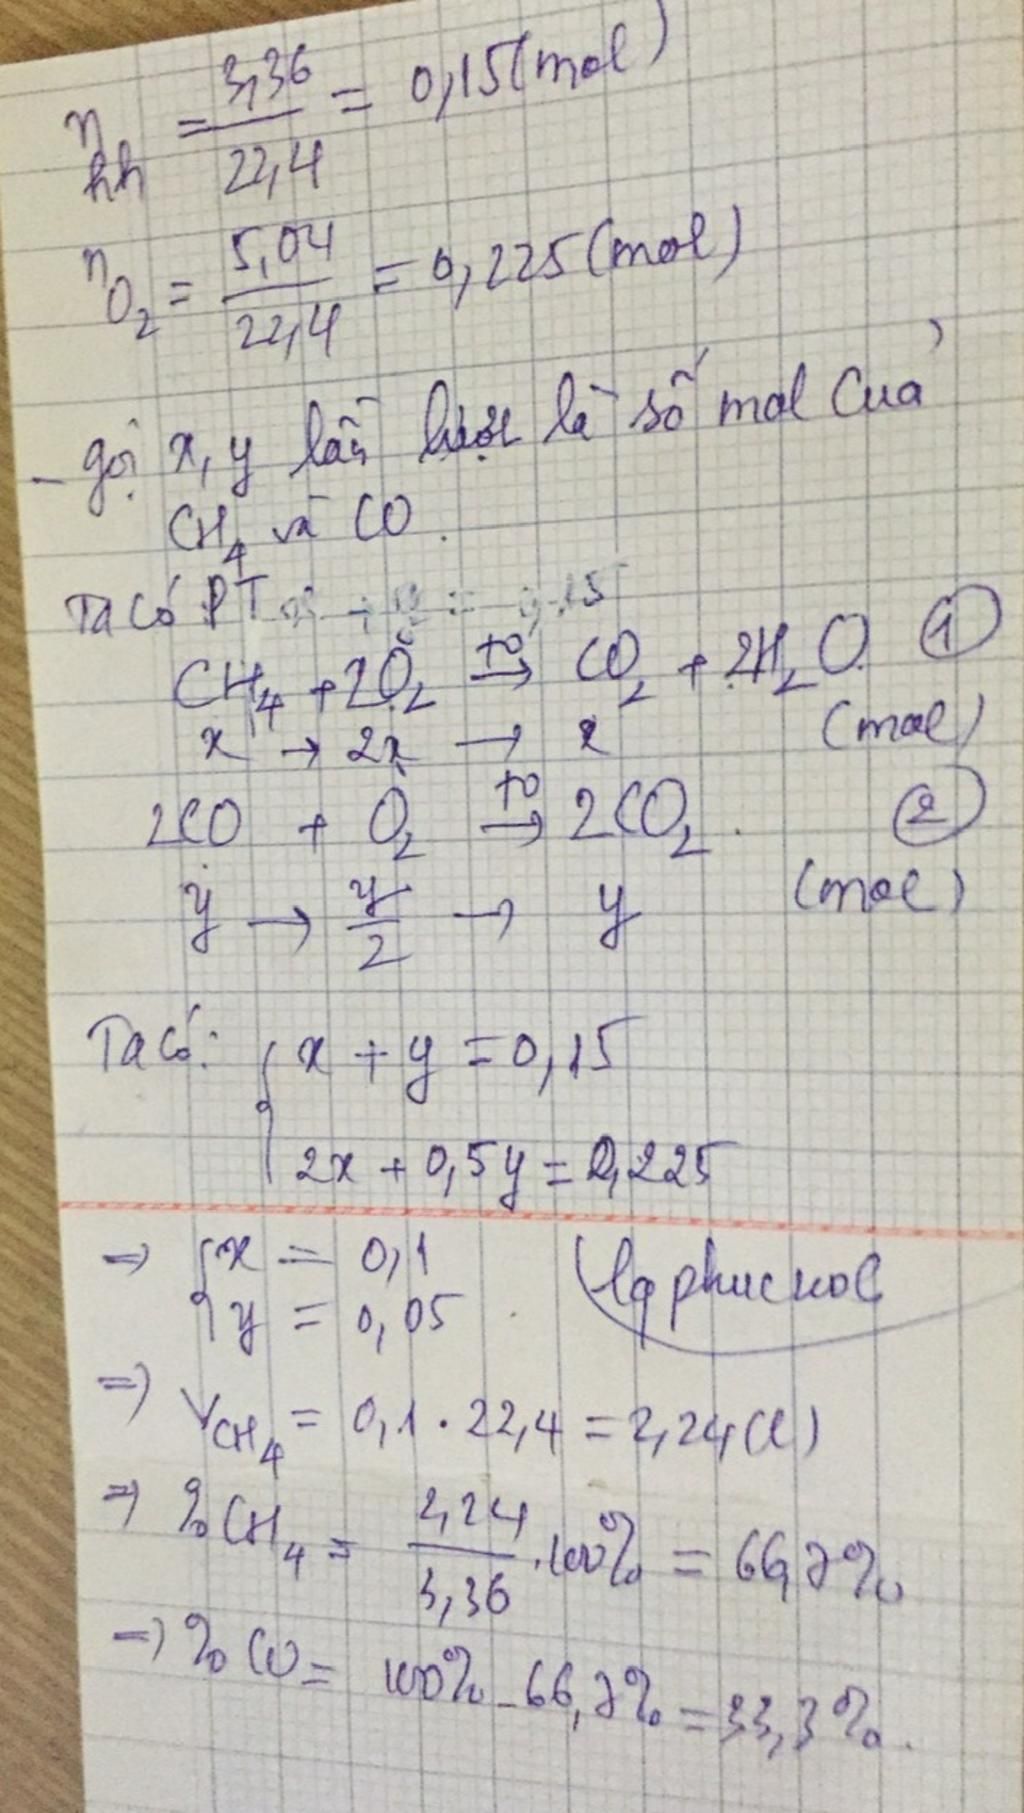 n hh = 3,36 / 22,4 = 0,15 (mol)
n O₂ = 5,04 / 22,4 = 0,225 (mol)
- gọi x, y lần lượt là số mol của
CH₄ và CO.
Ta có PT x + y = 0,15
CH₄ + 2O₂ –t⁰→ CO₂ + 2H₂O (1)
x → 2x → x (mol)
2CO + O₂ –t⁰→ 2CO₂. (2)
y → y/2 → y (mol)
Ta có: { x + y = 0,15
2x + 0,5y = 0,225
⇒ { x = 0,1
y = 0,05
⇒ V CH₄ = 0,1 . 22,4 = 2,24 (l)
⇒ % CH₄ = 2,24 / 3,36 . 100% = 66,7%
⇒ % CO = 100% - 66,7% = 33,3%.